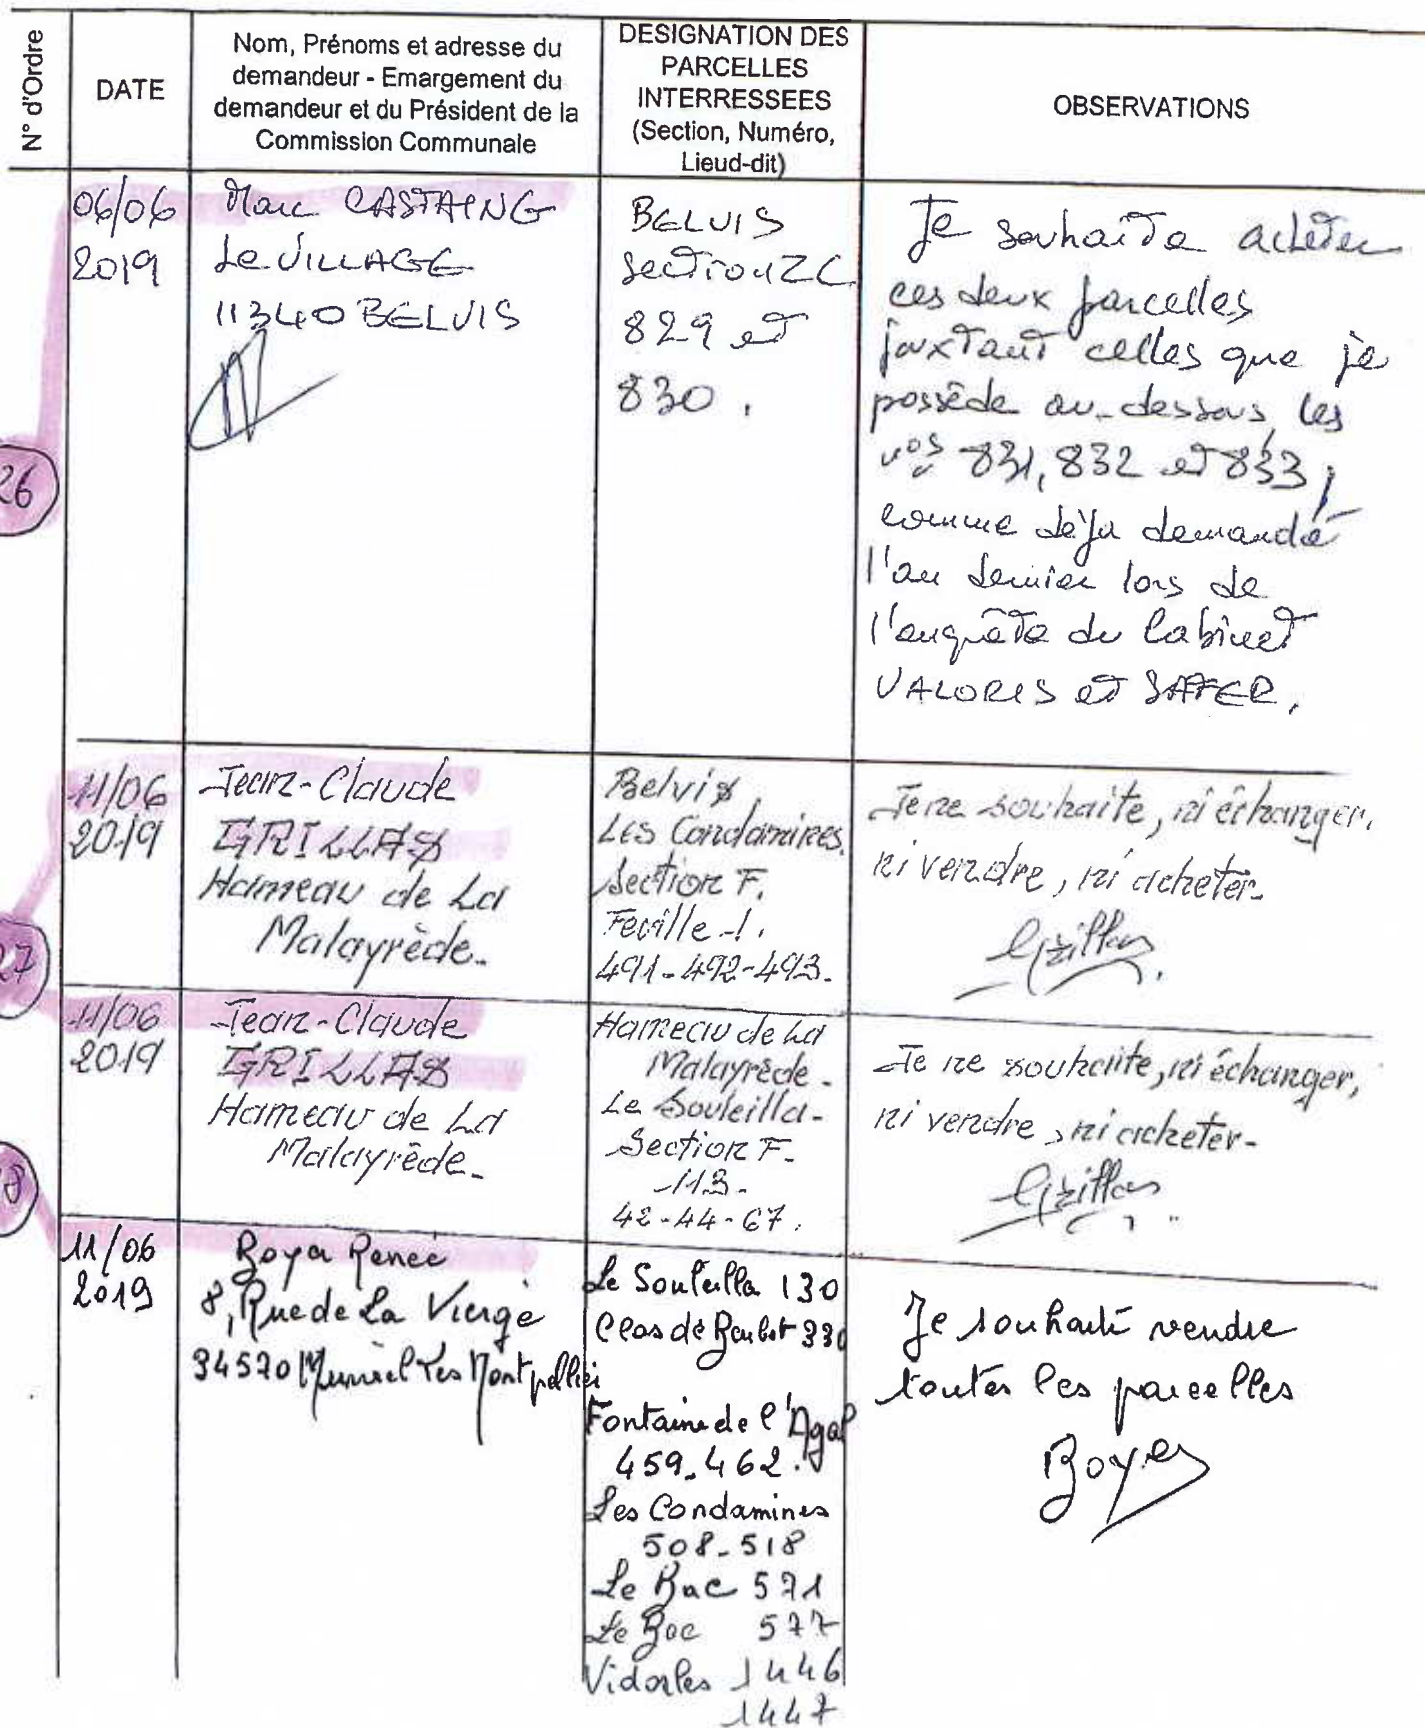 N° d'Ordre
DATE
Nom, Prénoms et adresse du
demandeur - Emargement du
demandeur et du Président de la
Commission Communale
DESIGNATION DES
PARCELLES
INTERRESSEES
(Section, Numéro,
Lieud-dit)
OBSERVATIONS
26
06/06
2019
Marc CASTAING
Le VILLAGE
11340 BELVIS
BELVIS
Section ZC
829 et
830.
Je souhaite acheter
ces deux parcelles
jouxtant celles que je
possède au-dessous, les
nos 831, 832 et 833,
comme déjà demandé
l'an dernier lors de
l'enquête du Cabinet
VALORIS et SAFER.
27
11/06
2019
Jean-Claude
GRILLAS
Hameau de La
Malayrède.
Belvis,
Les Condamines.
Section F.
Feuille 1.
491-492-493.
Je ne souhaite, ni échanger,
ni vendre, ni acheter.
Grillas
11/06
2019
Jean-Claude
GRILLAS
Hameau de La
Malayrède.
Hameau de La
Malayrède.
Le Souleilla.
Section F.
113.
42-44-67.
Je ne souhaite, ni échanger,
ni vendre, ni acheter.
Grillas
8
11/06
2019
Boyer Renée
8, Rue de La Vierge
34570 Murviel Les Montpellier
Le Souleilla 130
Clos de 330
Fontaine de l'Agal
459-462.
Les Condamines
508-518
Le Bac 571
Le Bac 577
Vidales 1446
1447
Je souhaite vendre
toutes les parcelles
Boyer